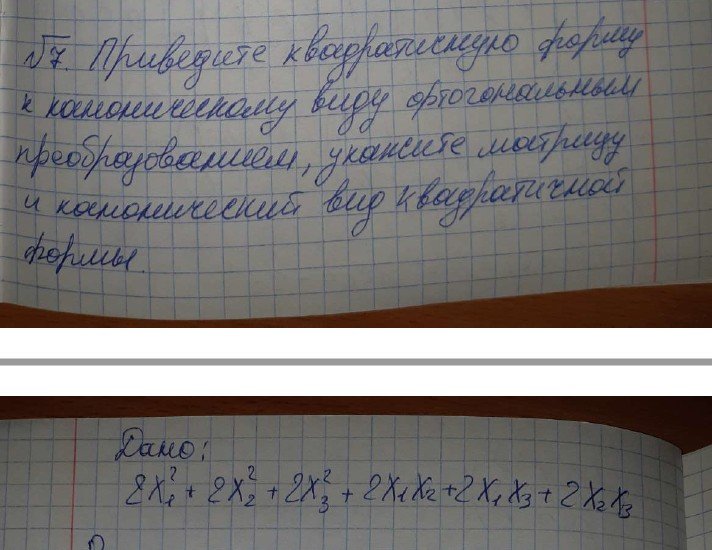 √7. Приведите квадратичную форму
к каноническому виду ортогональным
преобразованием, укажите матрицу
и канонический вид квадратичной
формы.
Дано:
2x₁² + 2x₂² + 2x₃² + 2x₁x₂ + 2x₁x₃ + 2x₂x₃